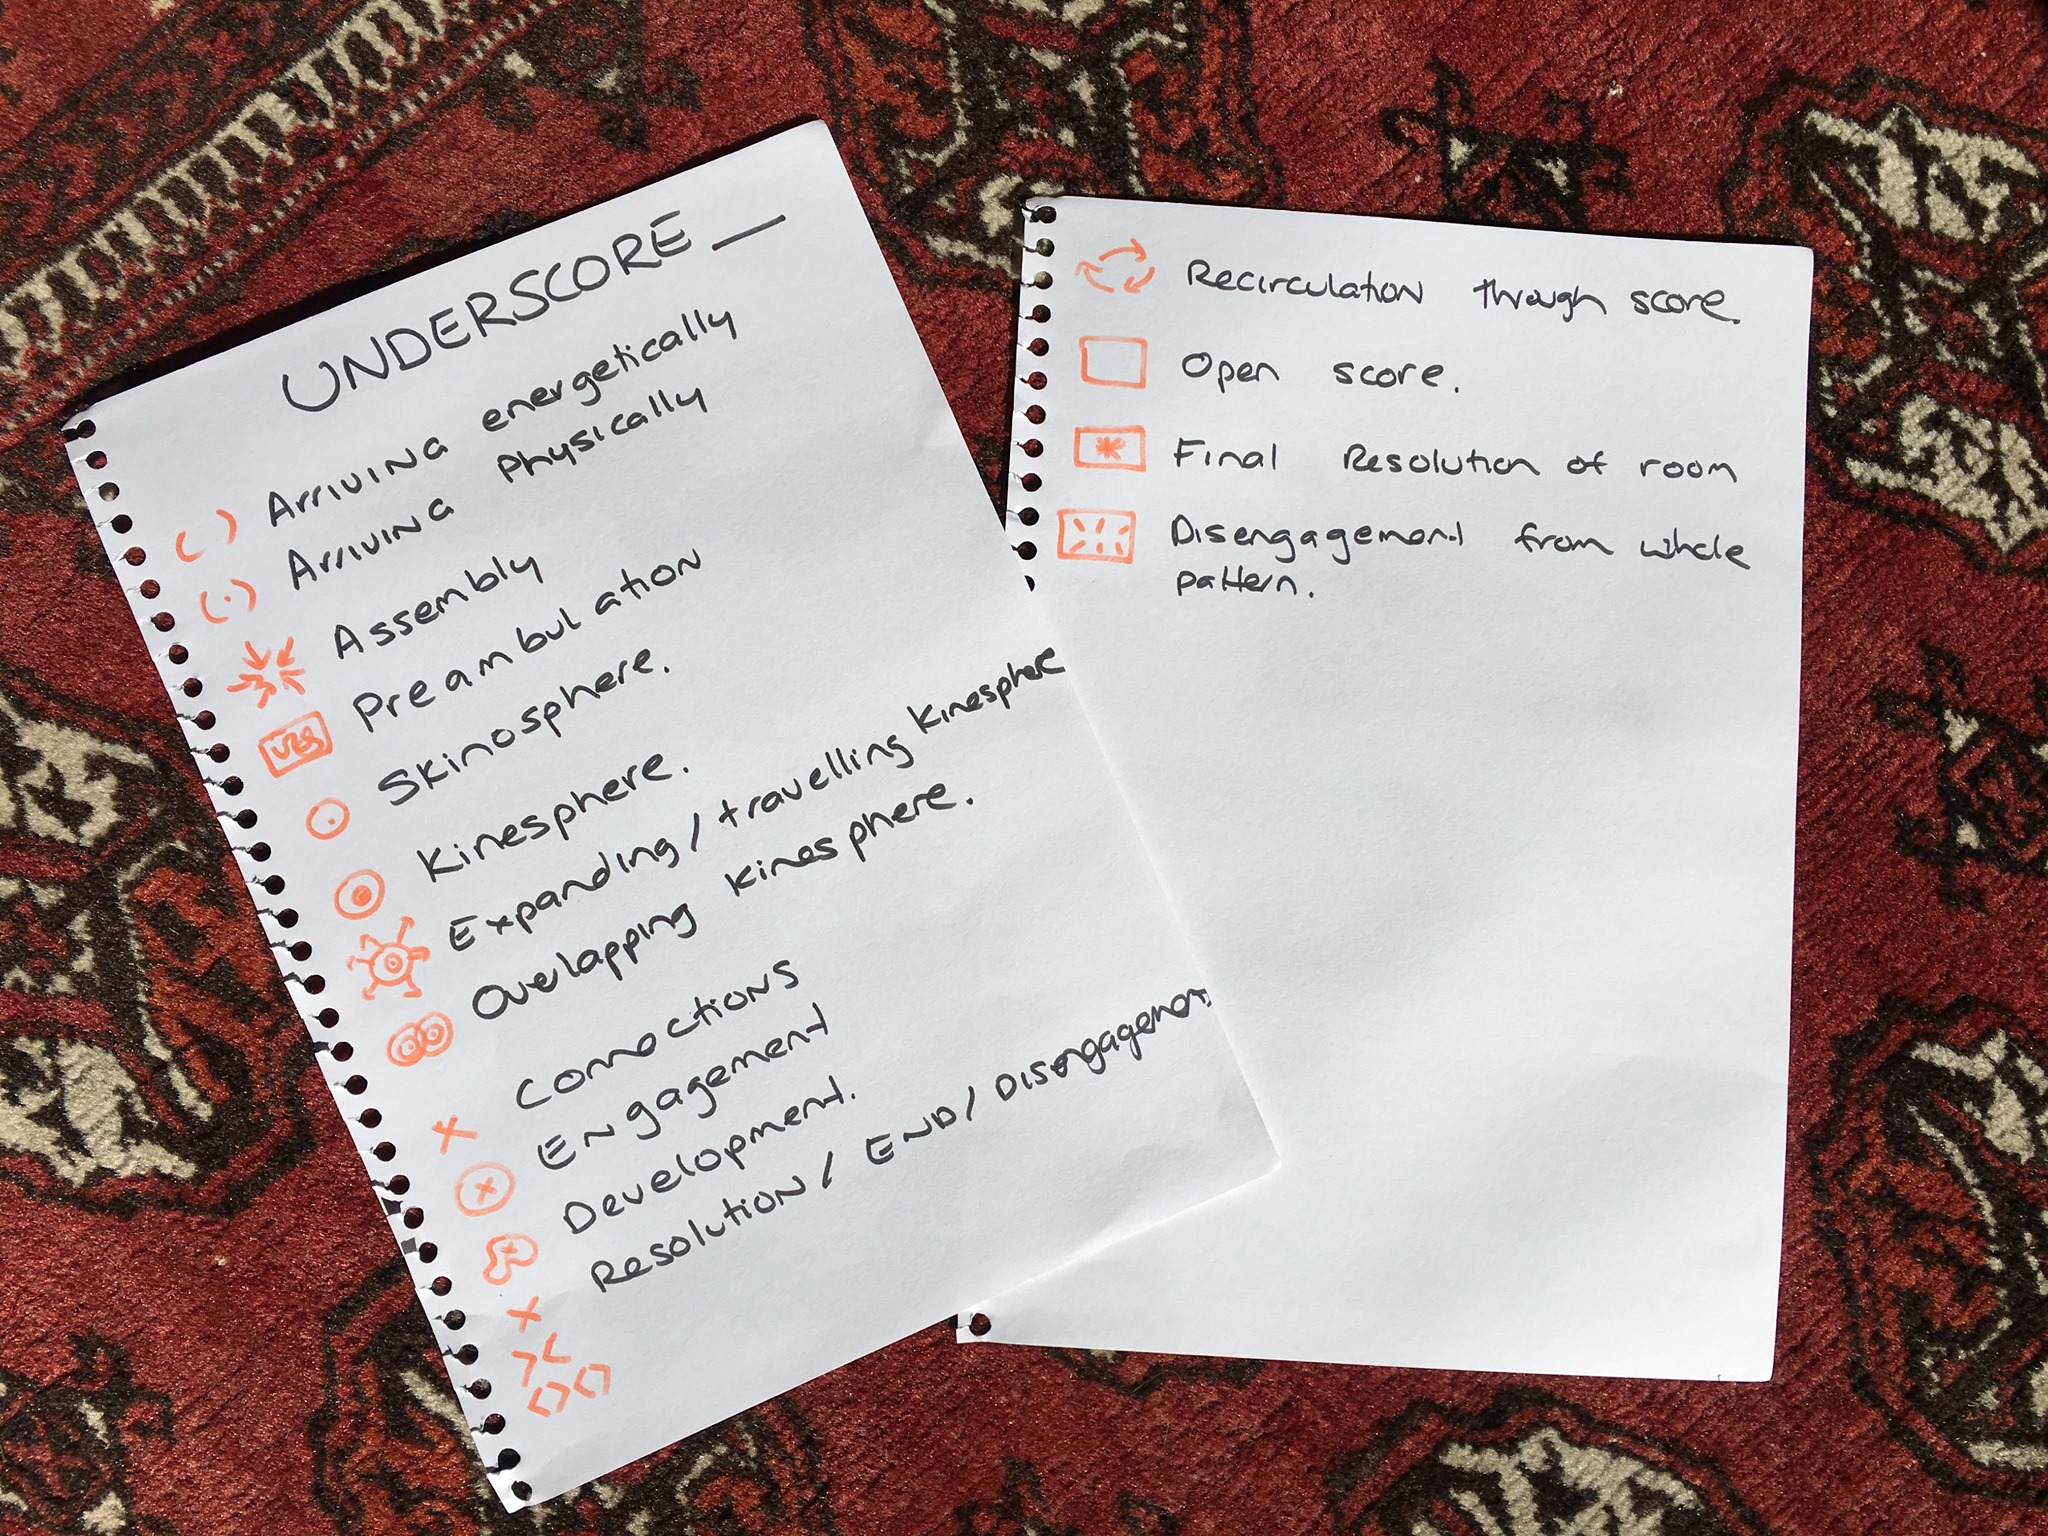 UNDERSCORE_
Arriving energetically
Arriving physically
Assembly
Preambulation
Skinosphere.
Kinesphere.
Expanding/travelling kinesphere
Overlapping kinesphere.
Connections
Engagement
Development.
Resolution/END/Disengagement
Recirculation through score.
Open score.
Final Resolution of room
Disengagement from whole
pattern.